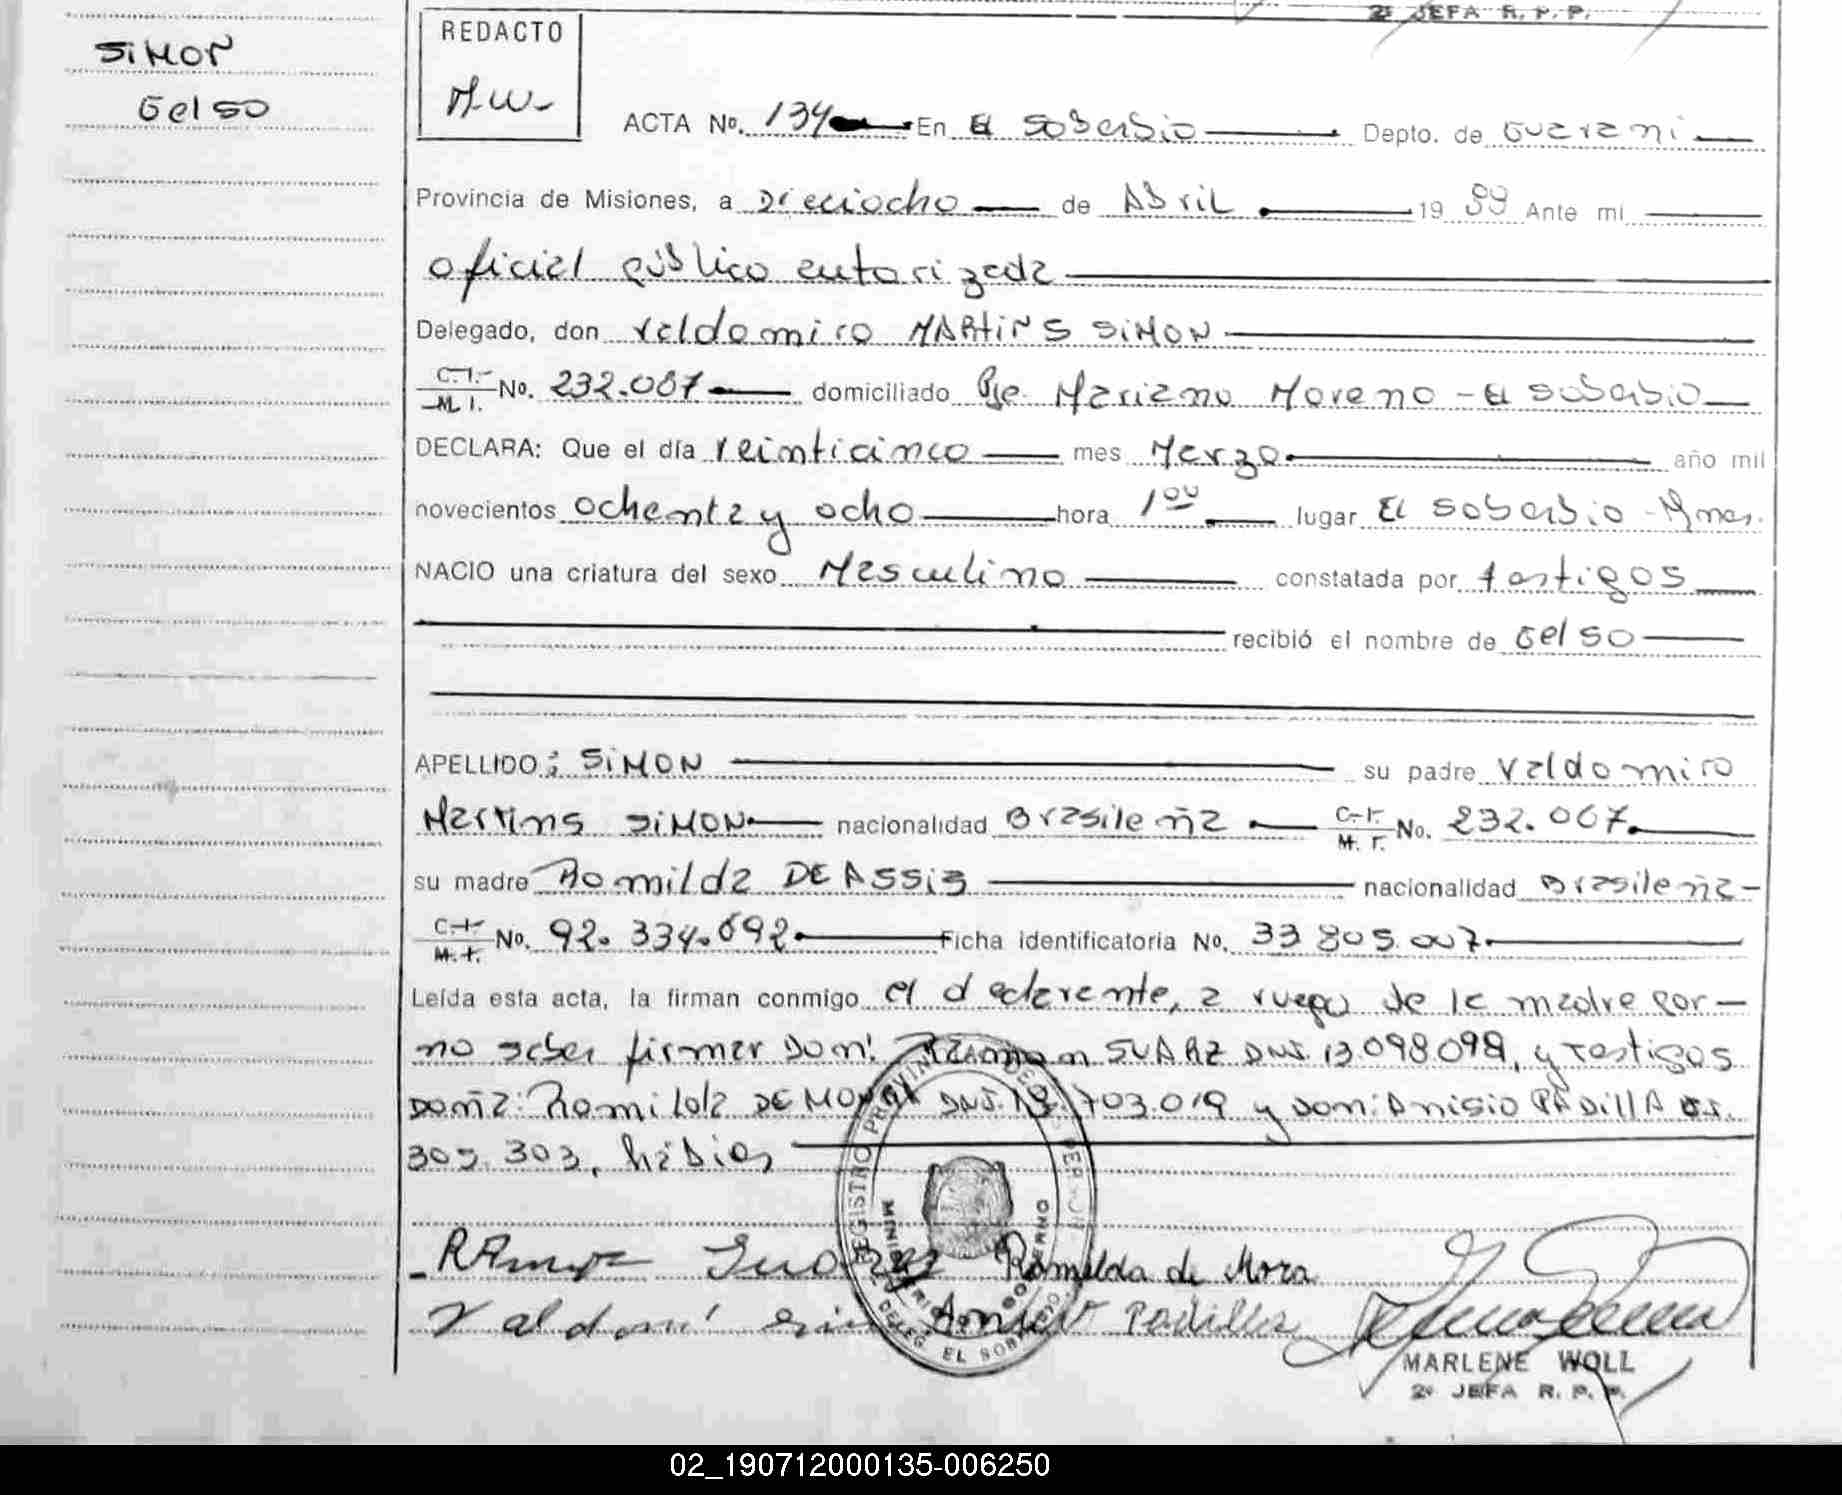 2º JEFA R. P. P.
SIMON
Celso
REDACTO
M.W.
ACTA No. 134 En El Soberbio Depto. de Guarani
Provincia de Misiones, a Dieciocho de Abril 19 89 Ante mi
oficial público autorizada
Delegado, don Valdomiro MARTINS SIMON
C.I. No. 232.067 domiciliado Pje. Mariano Moreno - El Soberbio
M. I.
DECLARA: Que el día veinticinco mes Marzo año mil
novecientos ochenta y ocho hora 1 00 lugar El Soberbio - Mnes.
NACIO una criatura del sexo Masculino constatada por testigos
recibió el nombre de Celso
APELLIDO: SIMON su padre Valdomiro
Martins SIMON nacionalidad Brasileña C.I. No. 232.067
M. I.
su madre Romilda DE ASSIS nacionalidad Brasileña
C.I. No. 92.334.692 Ficha identificatoria No. 33 805.007
M. I.
Leída esta acta, la firman conmigo el declarante, a ruego de la madre por
no saber firmar Don: Ramon SUARZ DNI. 13.098.098, y testigos
Doña: Romilda DE MORA DNI. 703.019 y Don: Anisio PADILLA
305.303, hábiles
Ramon Romilda de Mora
Padilla
REGISTRO PROVINCIAL DE LAS PERSONAS
MINISTERIO GOBIERNO
DELEG. EL SOBERBIO
MARLENE WOLL
2º JEFA R. P. P.
02_190712000135-006250